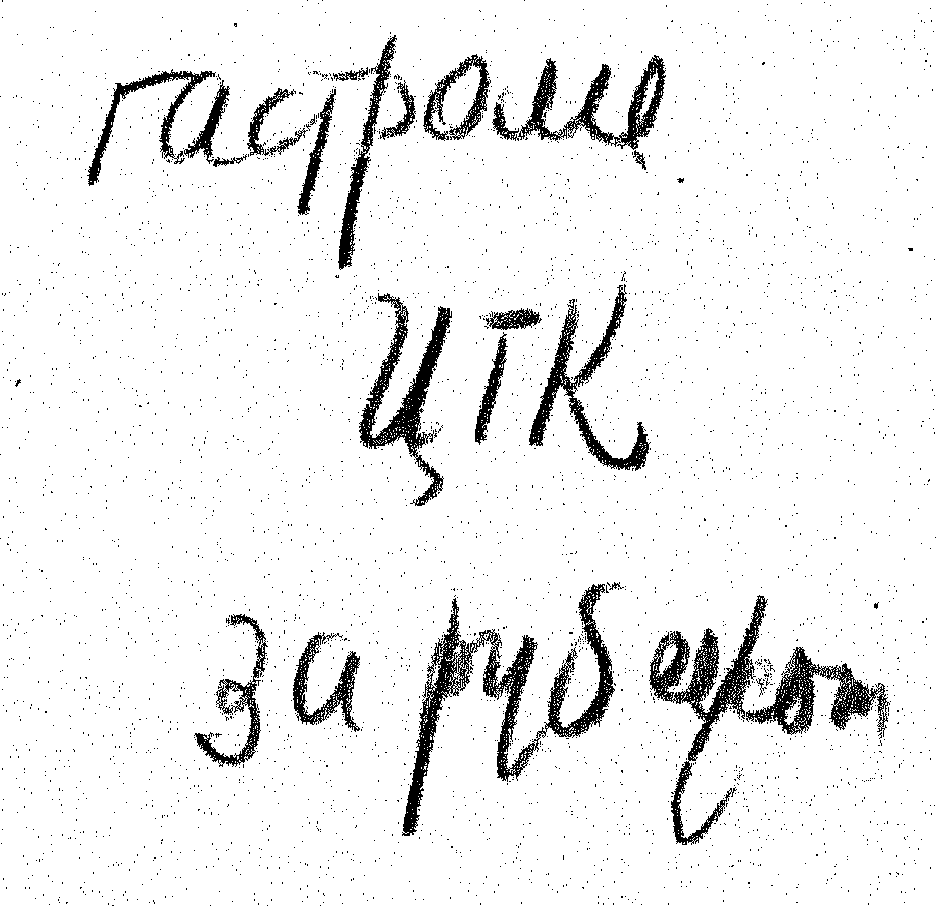 гастроле
ЦТК
за рубежом